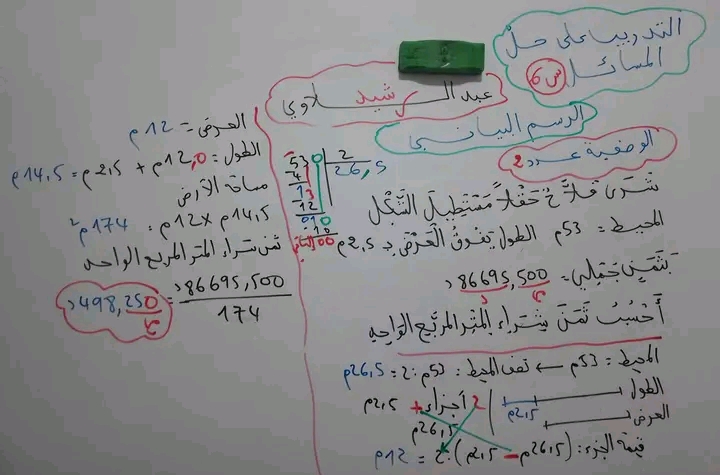 التدريب على حلّ
المسائل
س6
عبد الرشيد
الرسم البياني
الوضعية عدد 2
شترى فلاّحُ حَقْلاً مُسْتَطِيلَ الشَّكْلِ
المحيط = 53م الطول يفوقُ العَرْضَ بـ 2,5م
بِثَمَنٍ جَمَلِي = 86695,500د
أَحْسُبُ ثَمَنَ شِرَاءِ المتر المربّع الواحد
المحيط = 53م ← نصف المحيط : 53م : 2 = 26,5م
الطول
2,5م
العرض
2 أجزاء + 2,5م
26,5م
قيمة الجزء : (26,5م – 2,5م) : 2 = 12م
530 2
4 26,5
13
12
010
10
00
العرض = 12م
الطول = 12,0م + 2,5م = 14,5م
مساحة الأرض
14,5م × 12م = 174م²
ثمن شراء المتر المربع الواحد
86695,500د
174
= 498,250د